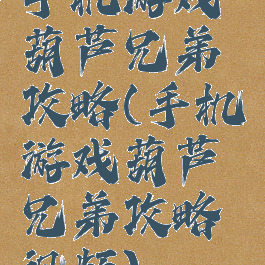 手机游戏
葫芦兄弟
攻略(手机
游戏葫芦
兄弟攻略
视频)